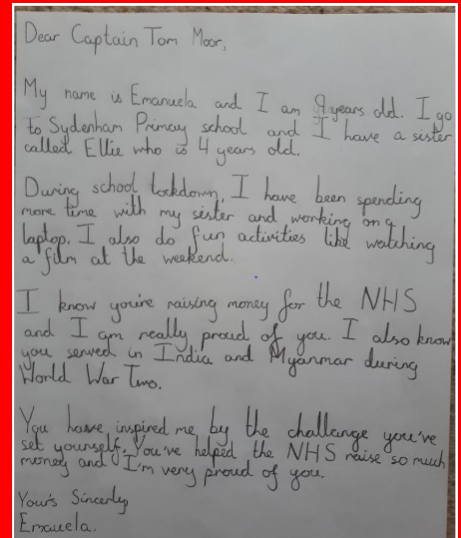 Dear Captain Tom Moor,
My name is Emanuela and I am 9 years old. I go
to Sydenham Primay school and I have a sister
called Ellie who is 4 years old.
During school lockdown, I have been spending
more time with my sister and working on a
laptop. I also do fun activities like watching
a film at the weekend.
I know you're raising money for the NHS
and I am really proud of you. I also know
you served in India and Myanmar during
World War Two.
You have inspired me by the challange you've
set yourself. You've helped the NHS raise so much
money and I'm very proud of you.
Your's Sincerly
Emauela.